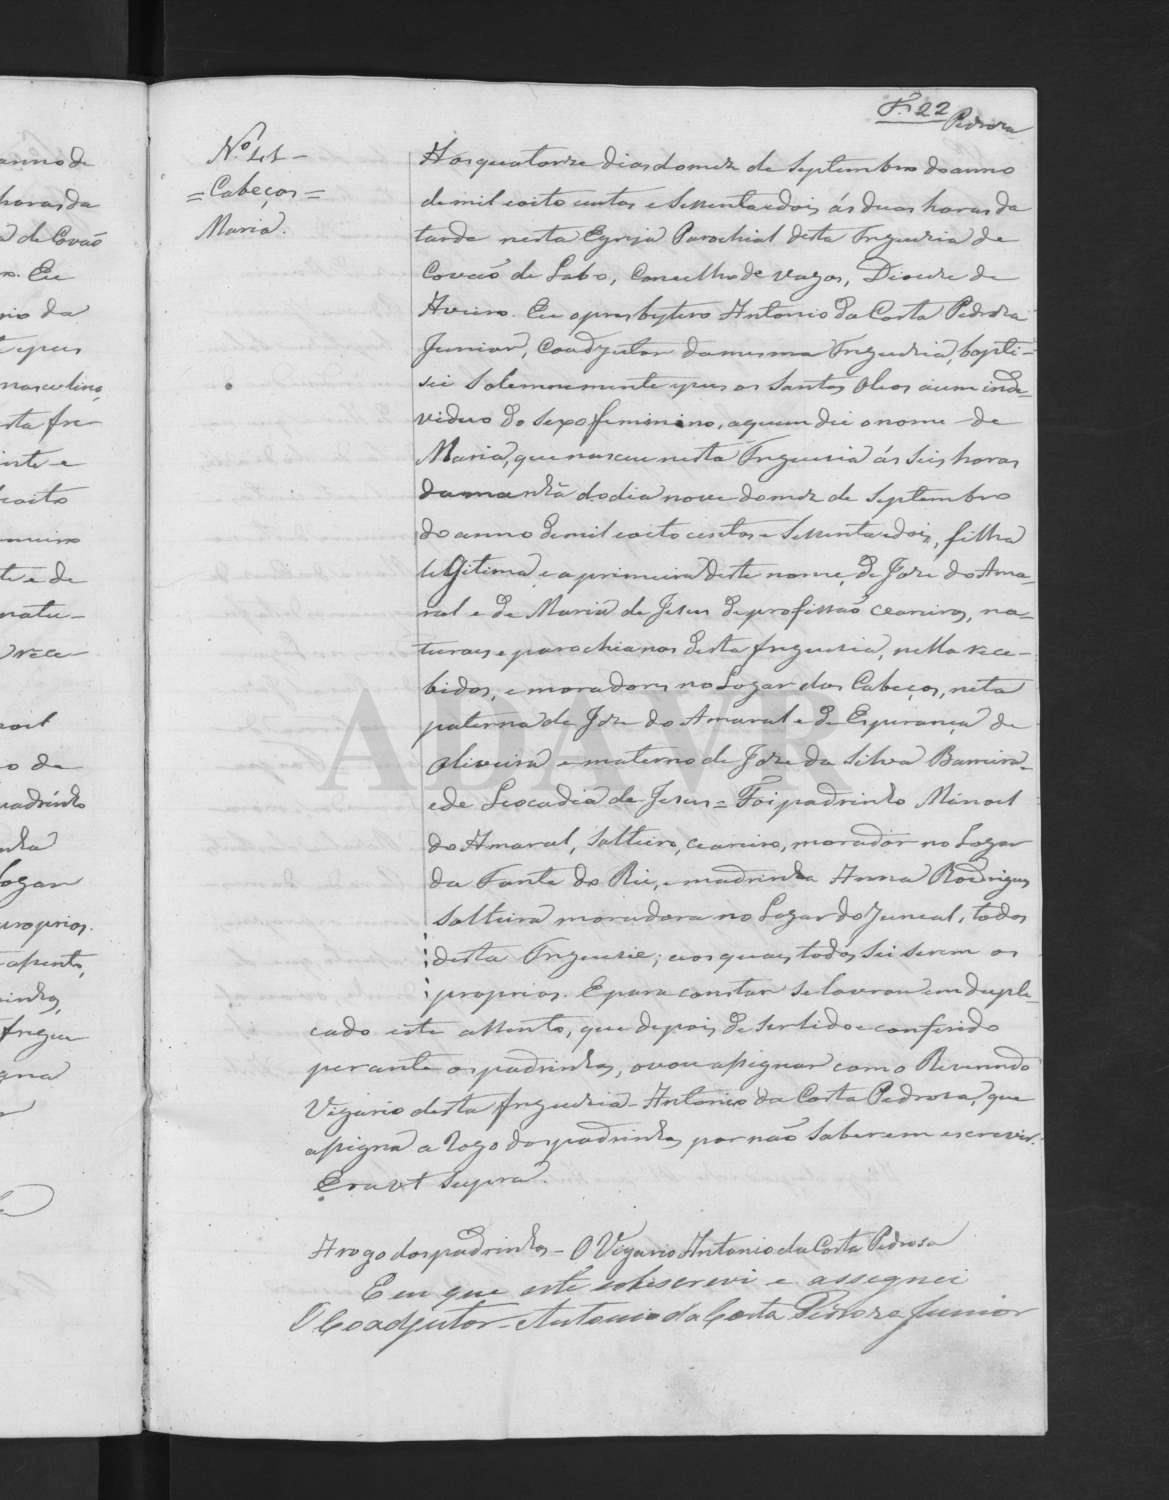 F. 22
Pedroza
anno de
horas da
de Covaõ
Eu
rio da
masculino,
sta fre
natu-
rece
proprios.
N.º 41 -
= Cabeços =
Maria.
Aos quatorze dias do mez de Septembro do anno
de mil e oito centos e sessenta e dois, ás duas horas da
tarde nesta Egreja Parochial desta Freguezia de
Covaõ de Lobo, Concelho de Vagos, Diocese de
Aveiro. Eu o presbytero Antonio da Costa Pedroza
Junior, Coadjutor da mesma Freguezia, bapti-
sei solemnemente e pus os Santos Oleos a um indi-
viduo do sexo feminino, a quem dei o nome de
Maria, que nasceu nesta Freguezia ás seis horas
da manhã do dia nove do mez de Septembro
do anno de mil e oito centos e sessenta e dois, filha
legitima, e a primeira deste nome, de Joze do Ama-
ral e de Maria de Jesus de profissaõ ceareiros, na-
turaes e parochianos desta freguezia, nella rece-
bidos, e moradores no Logar dos Cabeços, neta
paterna de Joze do Amaral e de Esperança de
Oliveira e materna de Joze da Silva Barreira
e de Leocadia de Jesus = Foi padrinho Manoel
do Amaral, solteiro, ceareiro, morador no Logar
da Fonte do Rei, e madrinha Anna Rodrigues
solteira moradora no Logar do Juncal, todos
desta Freguezia; e os quaes todos sei serem os
proprios. E para constar se lavrou em dupli-
cado este assento, que depois de ser lido e conferido
perante os padrinhos, o vou assignar com o Reverendo
Vigario desta freguezia - Antonio da Costa Pedroza, que
assigna a rogo dos padrinhos por naõ saberem escrever.
Era ut supra.
A rogo dos padrinhos - O Vigario Antonio da Costa Pedrosa
E eu que este subscrevi e assegnei
O Coadjutor - Antonio da Costa Pedroza Junior
ADAVR